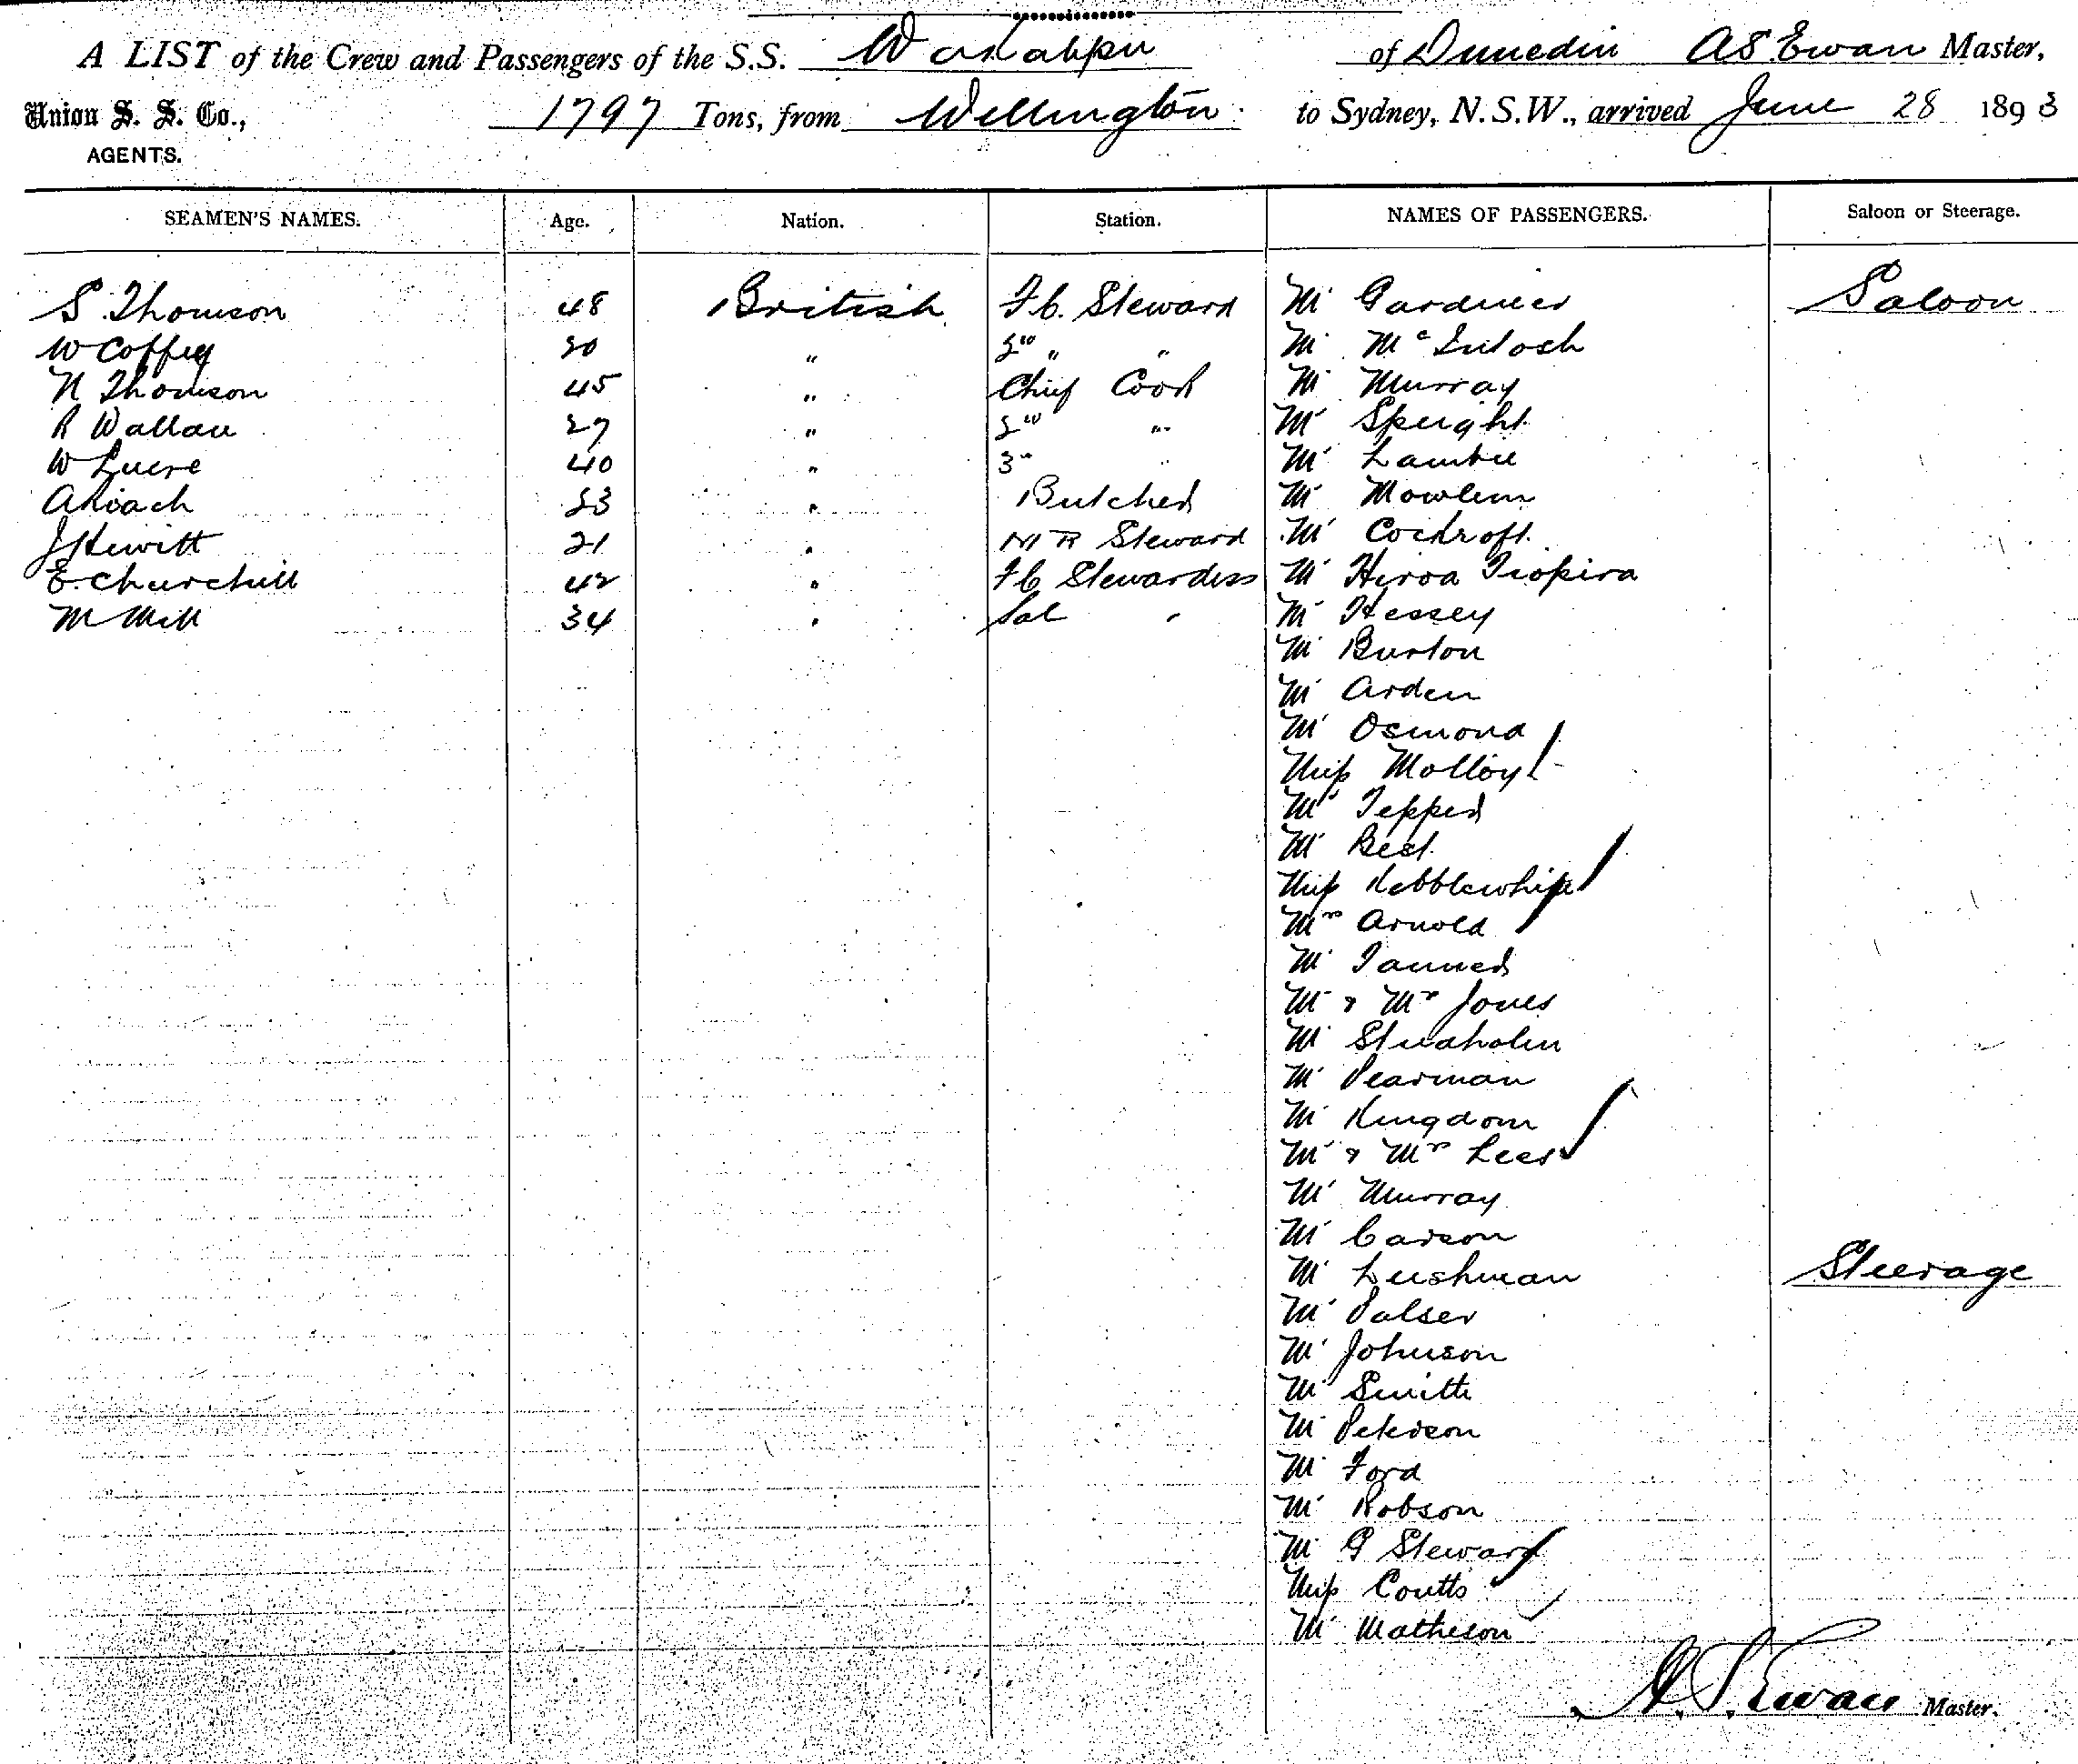 A LIST of the Crew and Passengers of the S.S. Wakatipu of Dunedin A S Ewan Master,
Union S. S. Co., 1797 Tons, from Wellington to Sydney, N.S.W., arrived June 28 1893
AGENTS.
SEAMEN'S NAMES. Age. Nation. Station. NAMES OF PASSENGERS. Saloon or Steerage.
S Thomson 48 British F.C. Steward Mr Gardiner Saloon
W Coffey 20 " 2nd " " Mr McIntosh
N Thomson 45 " Chief Cook Mr Murray
R Wallace 27 " 2nd " Mr Speight
W 40 " 3rd " Mr Lambie
A Riach 23 " Butcher Mr Mowlem
J Hewitt 21 " Steward Mr Cockroft
E Churchill 42 " F C Stewardess Mr Hiroa Tiopira
M Mill 34 " Sal " Mr Hessey
Mr Burton
Mr Arden
Mr Osmond
Miss Molloy
Mr Tepper
Mr Best
Miss Kebblewhite
Mrs Arnold
Mr Tanner
Mr & Mrs Jones
Mr Studholm
Mr Pearman
Mr Kingdom
Mr & Mrs Lees
Mr Murray
Mr Carson
Mr Lushman Steerage
Mr Palser
Mr Johnson
Mr Smith
Mr Peterson
Mr Ford
Mr Robson
Mr G Steward
Miss Coutts
Mr Matheson
A. S. Ewan Master.